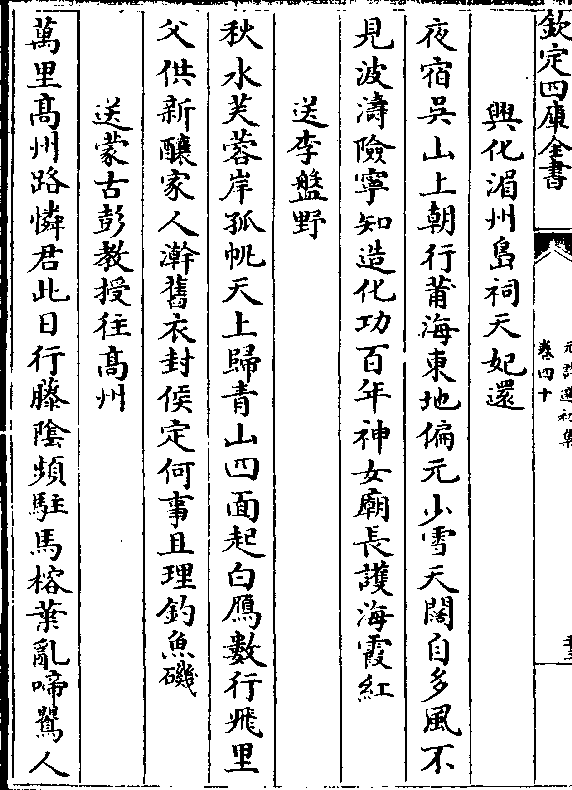 欽定四庫全書
元詩選初集
卷四十
興化湄州島祠天妃還
夜宿吳山上朝行莆海東地偏元少雪天闊自多風不
見波濤險寧知造化功百年神女廟長護海霞紅
送李盤野
秋水芙蓉岸孤帆天上歸青山四面起白鴈數行飛里
父供新釀家人澣舊衣封侯定何事且理釣魚磯
送蒙古彭教授往髙州
萬里髙州路憐君此日行藤陰頻駐馬榕葉亂啼鶯人